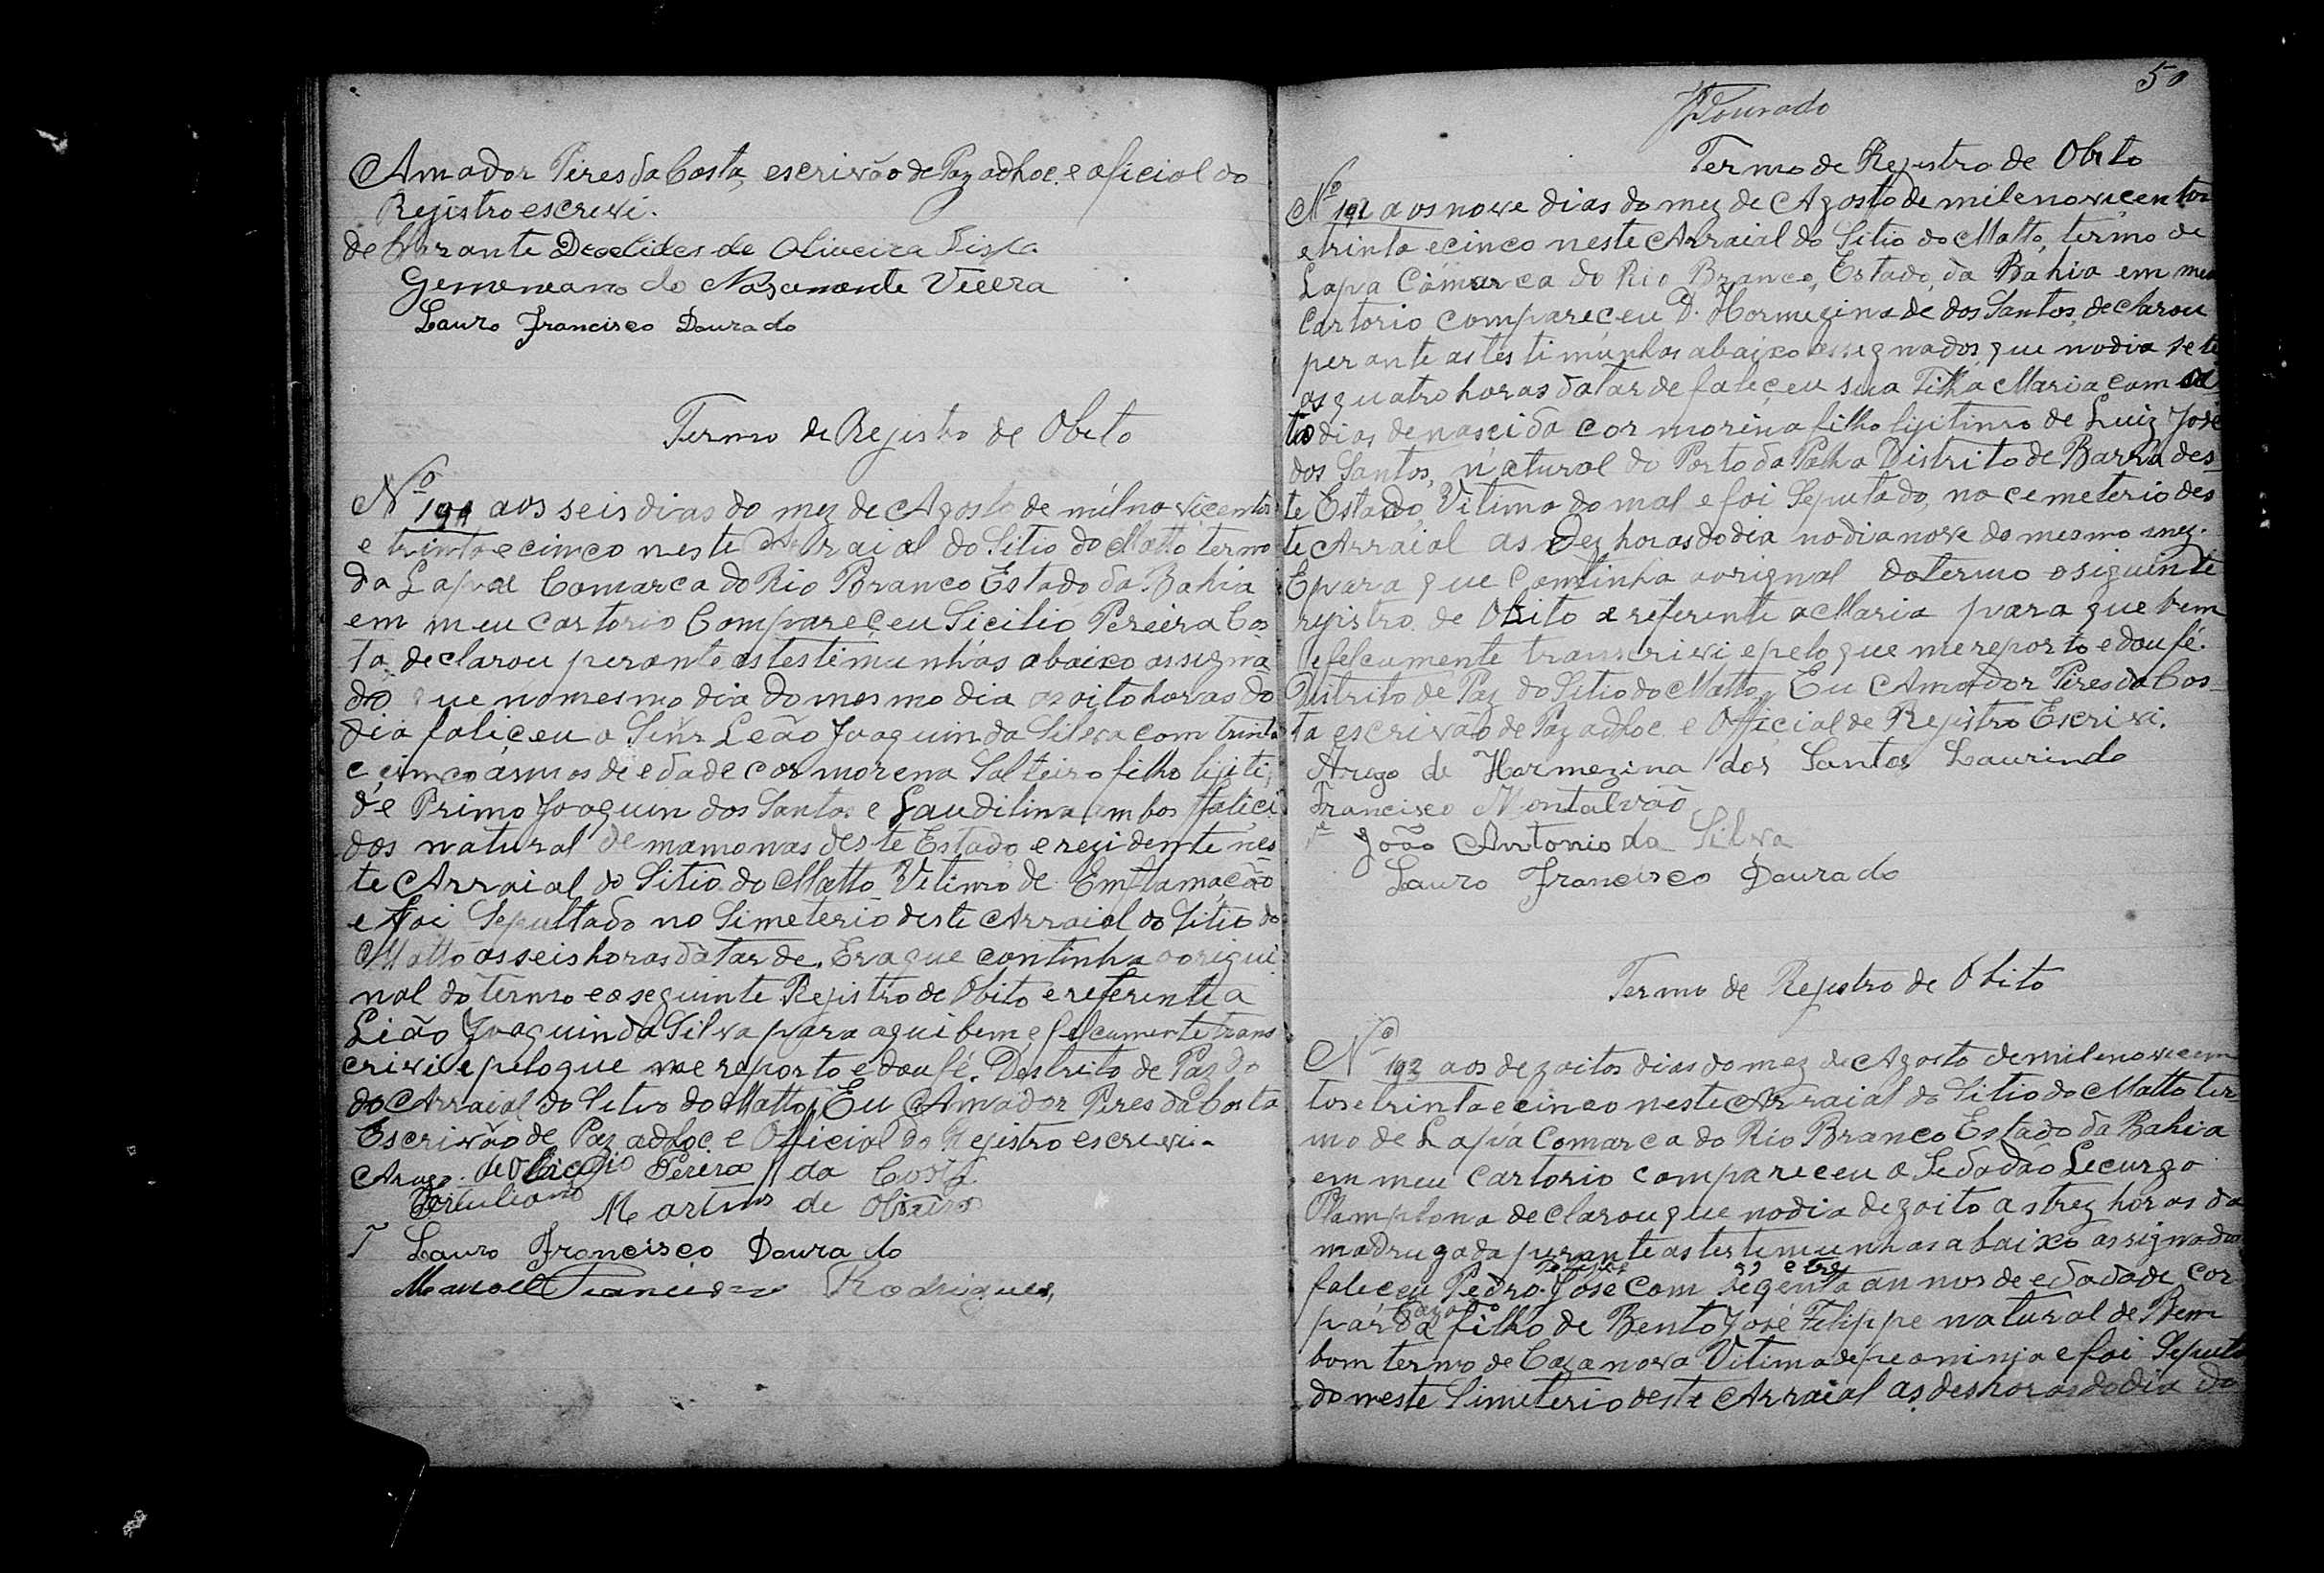 Amador Pires da Costa, escrivão de Paz adhoc. e oficial do
Registro escrevi.
declarante Deoclides de Oliveira
do Nascimento Vieira
Lauro Francisco Dourado
Termo de Rejistro de Obito
Nº 191 aos seis dias do mez de Agosto de mil novicentos
e trinta e cinco neste Arraial do Sitio do Matto termo
da Lapa Comarca do Rio Branco Estado da Bahia
em meu cartorio Compareçeu Sicilio Pereira Cos
ta, declarou perante as testimunhas abaixo assigna
do que no mesmo dia do mesmo dia as oito horas do
dia faliçeu o Senr Leão Joaquin da Silva com trinta
e çinco annos de edade cor morena Salteiro filho lijiti
de Primo Joaquin dos Santos e Laudilina ambos faliçi
dos natural de mamonas deste Estado e rezidente nes
te Arraial do Sitio do Matto Vitimo de Emflamação
e foi Sepultado no Simeterio deste Arraial do Sitio do
Matto as seis horas da tarde. Era que continha o origui
nal do termo e o seguinte Rejistro de Obito e referente a
Lião Joaquin da Silva para aqui bem e felcumente trans
crivi e pelo que me reporto e dou fé. Destrito de Paz do
do Arraial do Sitio do Matto, Eu Amador Pires da Costa
Escrivão de Paz adhoc e Official do Rejistro escrevi.
Arogo de Pereira da Costa
Tertuliano Martins de Oliveira
Tª Lauro Francisco Dourado
Manoel Francisco Rodrigues
50
Dourado
Termo de Rejistro de Obito
Nº 192 aos nove dias do mez de Agosto de mil e novicentos
e trinta e cinco neste Arraial do Sitio do Matto, termo de
Lapa Cómarca do Rio Branco, Estado da Bahia em meu
Cartorio compareçeu D. Hormezina de dos Santos, declarou
perante as testimunhas abaixo assegnados que no dia sete
as quatro horas da tarde faleçeu sua Filha Maria com oi
to dias de nascida cor morina filho lijitimo de Luiz José
dos Santos, natural do Porto da Palha Distrito de Barra des
te Estado, Vitimo do mal e foi Seputado, no cemeterio des
te Arraial as Dez horas do dia no dia nove do mesmo mez.
Epara que comtinha o orignal do termo o siguinte
rejistro de Obito e referente a Maria para que bem
e felcumente transcrivi e pelo que me reporto e dou fé.
Distrito de Paz do Sitio do Matto, Eu Amador Pires da Cos
ta escrivão de Paz adhoc e Offiçial de Rejistro Escrivi.
Arogo de Hormezina dos Santos Laurindo
Francisco Montalvão
Tª João Antonio da Silva
Lauro Francisco Dourado
Termo de Rejistro de Obito
Nº 193 aos dezoitos dias do mez de Agosto de mil e novecem
tos e trinta e cinco neste Arraial do Sitio do Matto ter
mo de Lapa Comarca do Rio Branco Estado da Bahia
em meu cartorio compareceu o Sedadão Lecurgo
Pamplona declarou que no dia dezoito as trez horas da
madrugada perante as testemunhas abaixo assignados
faliceu Pedro José com annos de edadade cor
parda filho de Bento José Felippe natural de Bem
bom termo de Caza nova Vitima de e foi Seputa
do neste Simiterio deste Arraial as des horas do dia do